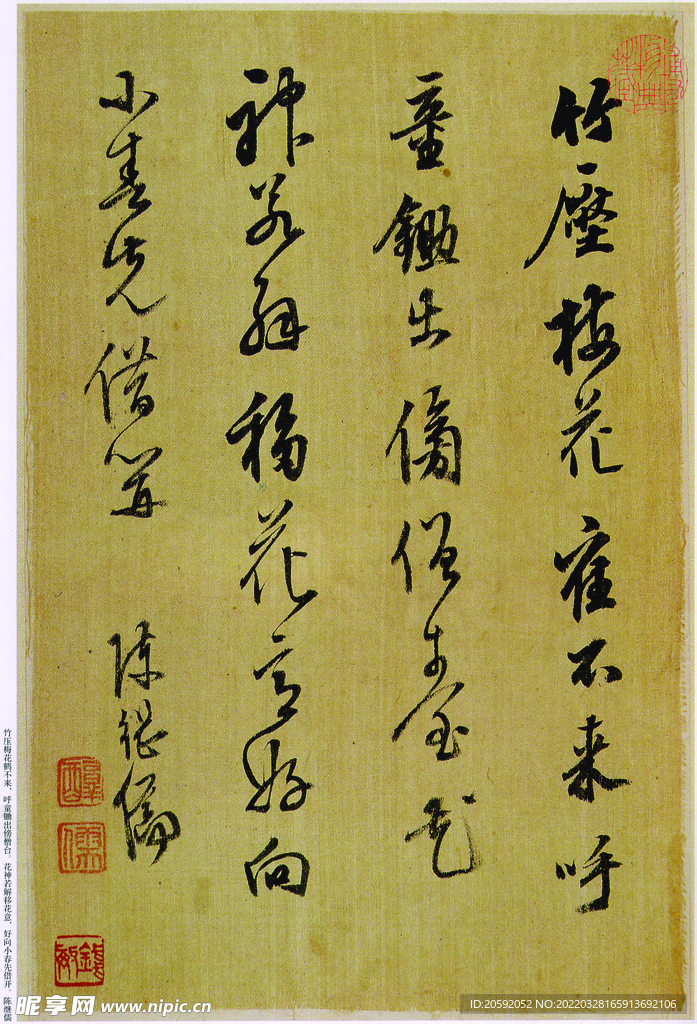 竹壓梅花寉不来呼
童鋤出傍僧臺花
神若解移花意好向
小春先借開
陳継儒
竹压梅花鹤不来，呼童锄出傍僧台。花神若解移花意，好向小春先借开。陈继儒
昵享网 www.nipic.cn
ID:20592052 NO:20220328165913692106